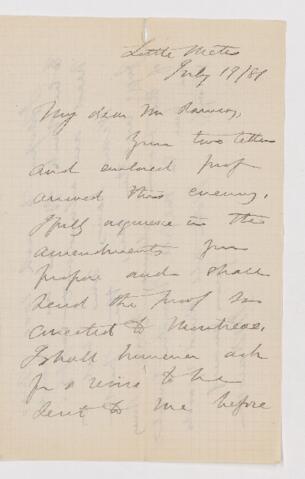 Little Metis
July 19/81
My dear Mr Dawson,
Your two letters
and enclosed proof
arrived this evening.
I fully acquiesce in the
amendments you
propose and shall
send the proof so
corrected to Montreal.
I shall however ask
for a revise to be
sent to me before